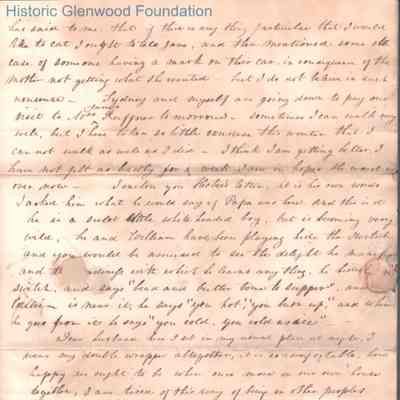 Historic Glenwood Foundation
has said to me, that if there is any thing particular that I would
like to eat I ought to take some, and then mentioned some old
case of someone having a mark on their ear in consequence of the
mother not getting what she wanted - but I do not believe in such
nonsense - Sydney and myself are going down to pay our
visit to Mrs Ruffner to-morrow - sometimes I can walk very
well, but I have taken so little exercise this winter that I
can not walk as well as I did - I think I am getting better, I
have not felt so badly for a week I am in hopes the worst is
over now - I enclose you letter, it is his own words
I asked him what he would say of Papa was here and this is it
he is a sweet little white headed boy, but is becoming very
wild, he and William have been playing hide the switch
and you would be amused to see the delight he
and the with which he learns any thing, he
switch, and says "hot and butter come to supper", and
William is near it, he says "you hot, you burn up," and when
he goes from it he says "you cold, you cold as ice"
Dear husband here I sit in my usual place at night, I
wear my double wrapper altogether, it is so comfortable, how
happy we ought to be when once more in our own house
together, I am tired of this way of being in other peoples